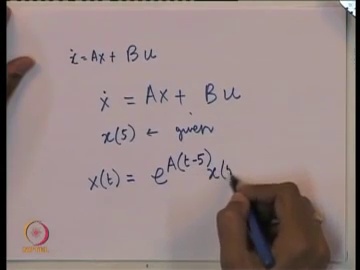 ẋ = Ax + Bu
ẋ = Ax + Bu
x(5) ← given
x(t) = e^{A(t-5)} x(
NPTEL